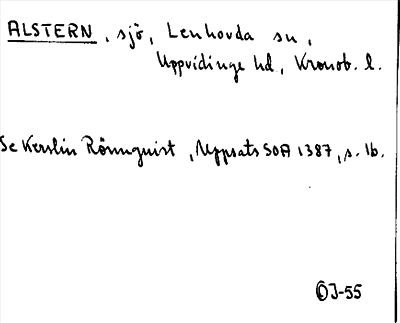 ALSTERN, sjö, Lenhovda sn,
Uppvidinge hd, Kronob. l.
Se Kerstin Rönnquist, Uppsats SOA 1387, s. 16.
ÖJ-55